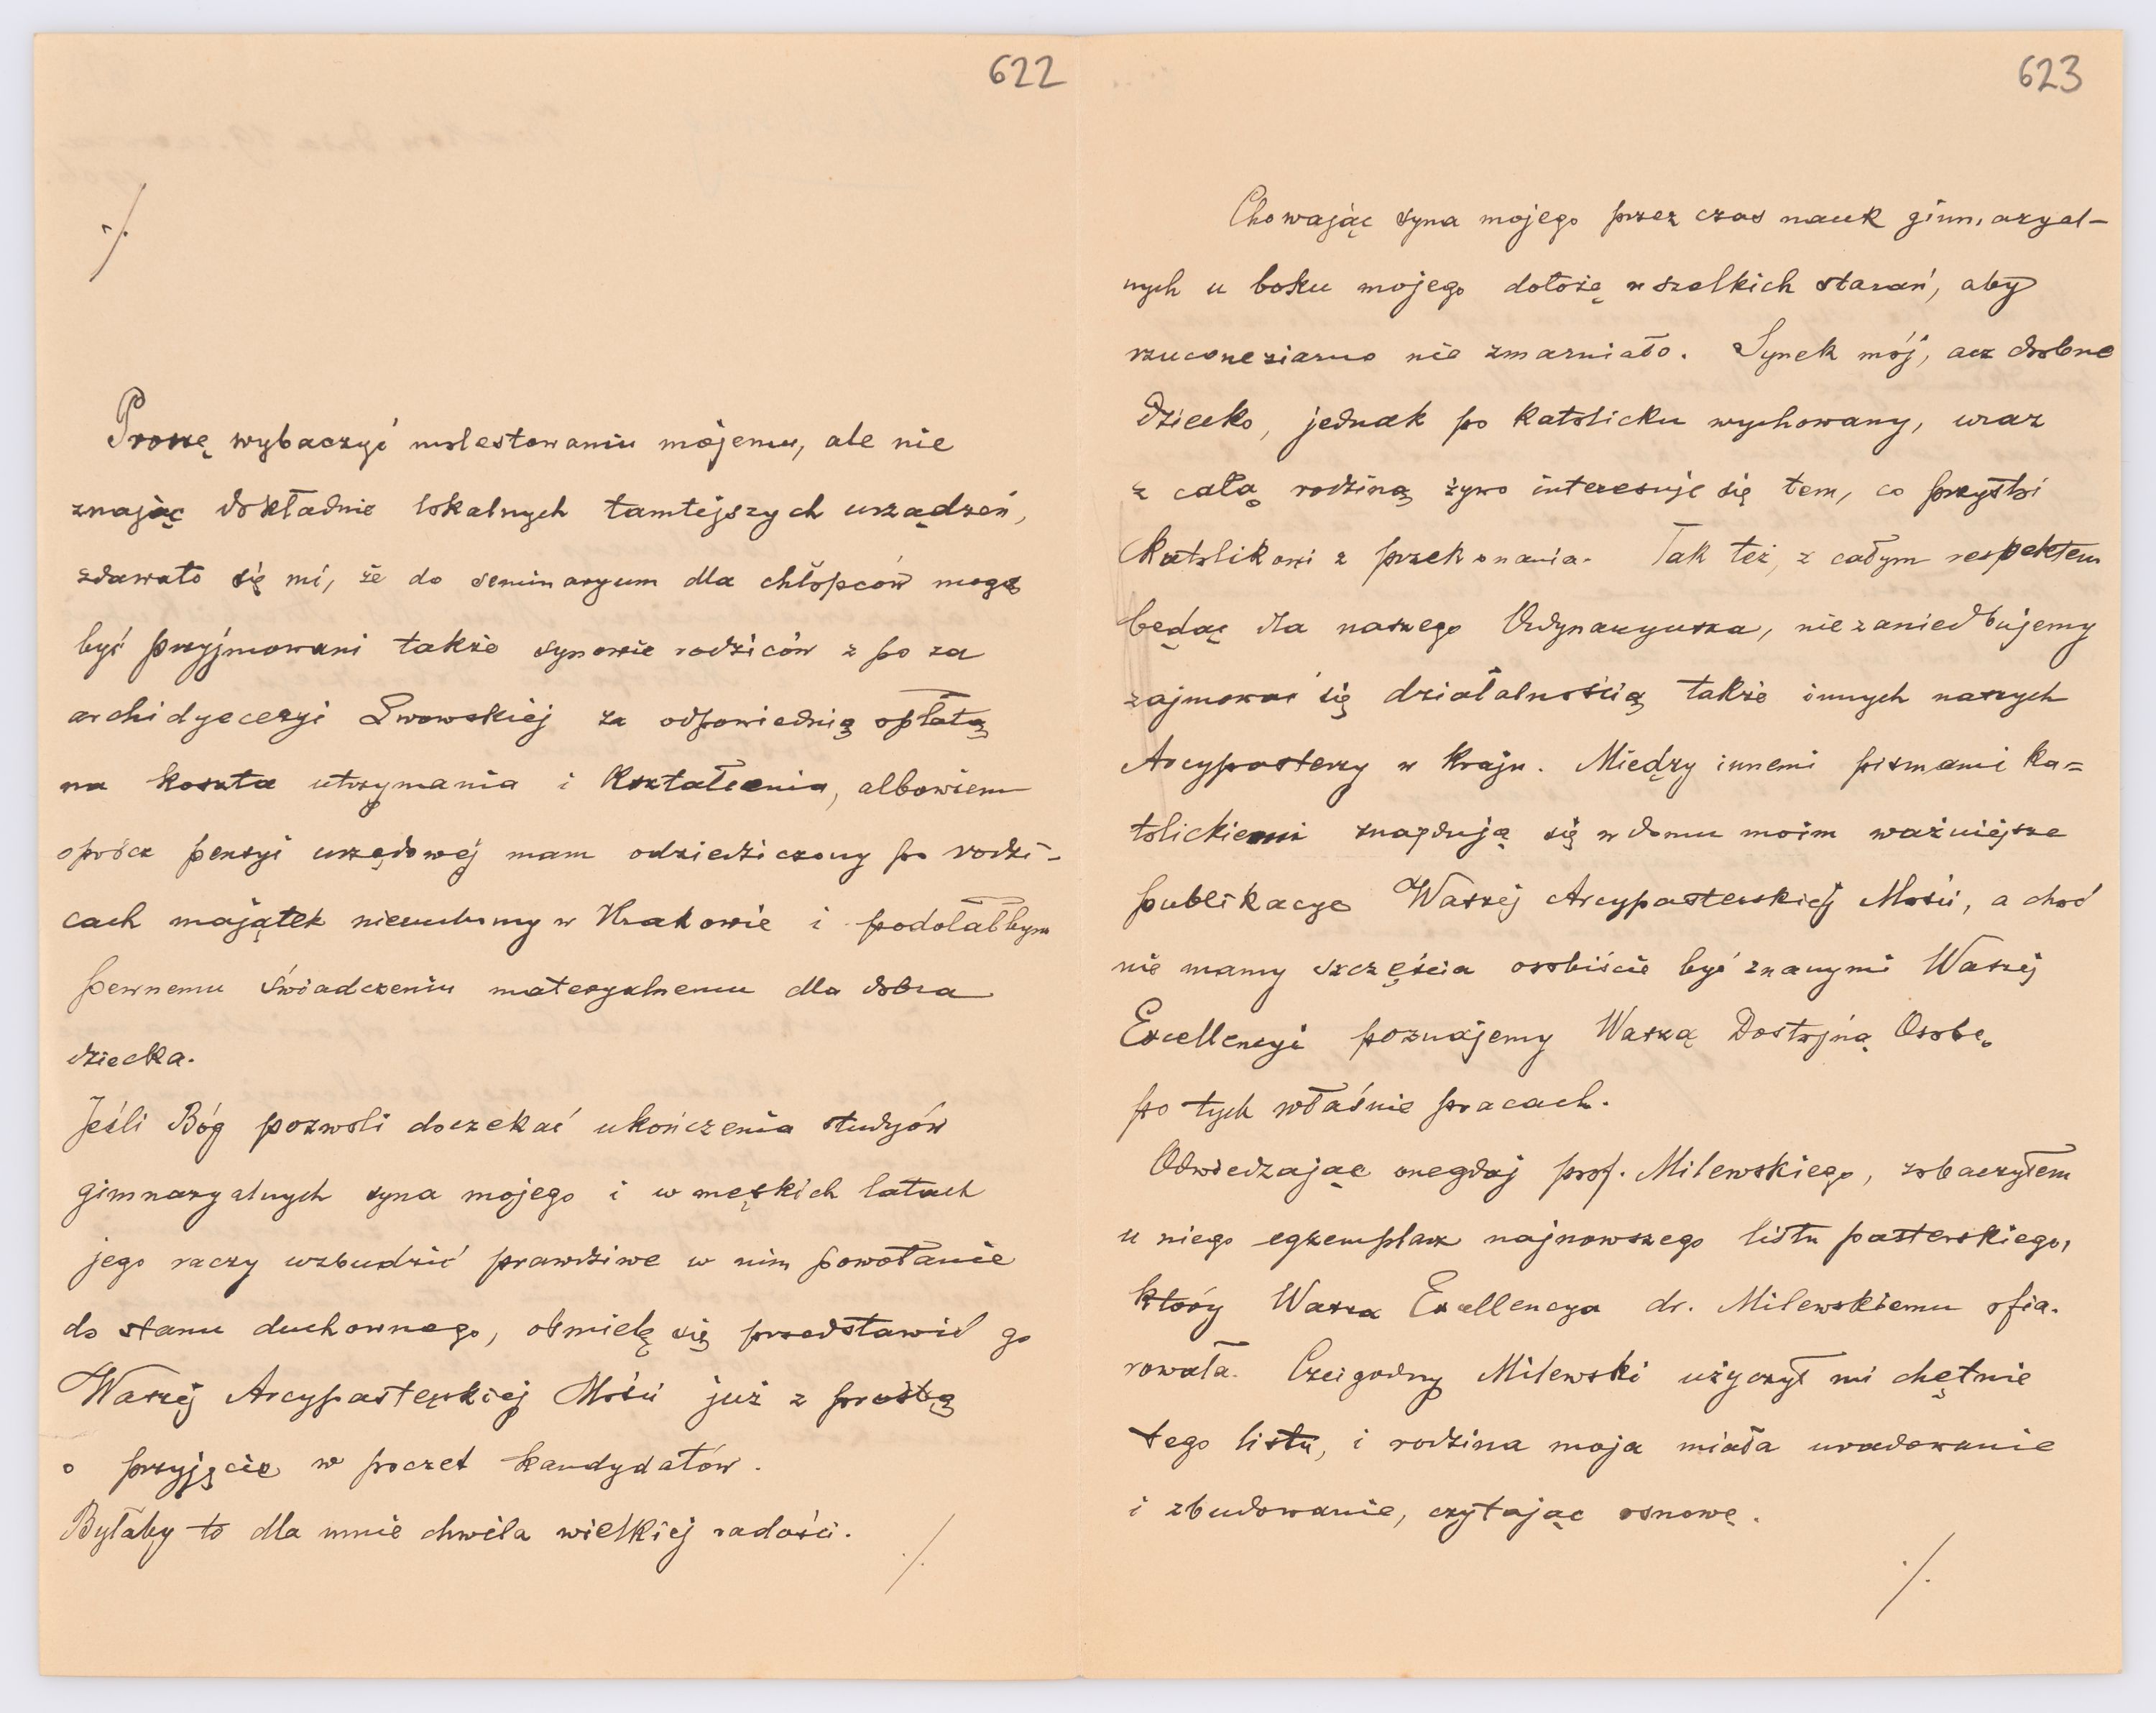 622
./.
Proszę wybaczyć molestowaniu mojemu, ale nie
znając dokładnie lokalnych tamtejszych urządzeń,
zdawało się mi, że do seminaryum dla chłopców mogą
być przyjmowani także synowie rodziców z po za
archidyecezyi Lwowskiej za odpowiednią opłatą
na koszta utrzymania i kształcenia, albowiem
oprócz pensyi urzędowej mam odziedziczony po rodzi-
cach majątek nieruchomy w Krakowie i podołałbym
pewnemu świadczeniu materyalnemu dla dobra
dziecka.
Jeśli Bóg pozwoli doczekać ukończenia studyów
gimnazyalnych syna mojego i w męskich latach
jego raczy wzbudzić prawdziwe w nim powołanie
do stanu duchownego, ośmielę się przedstawić go
Waszej Arcypasterskiej Mości już z prośbą
o przyjęcie w poczet kandydatów.
Byłaby to dla mnie chwila wielkiej radości.
./.
623
Chowając syna mojego przez czas nauk gimnazyal-
nych u boku mojego dołożę wszelkich starań, aby
rzucone ziarno nie zmarniało. Synek mój, acz drobne
dziecko, jednak po katolicku wychowany, wraz
z całą rodziną żywo interesuje się tem, co przystoi
katolikowi z przekonania. Tak też, z całym respektem
będąc dla naszego Ordynaryusza, nie zaniedbujemy
zajmować się działalnością także innych naszych
Arcypasterzy w kraju. Między innemi pismami ka=
tolickiemi znajdują się w domu moim ważniejsze
publikacye Waszej Arcypasterskiej Mości, a choć
nie mamy szczęścia osobiście być znanymi Waszej
Excellencyi poznajemy Waszą Dostojną Osobę
po tych właśnie pracach.
Odwiedzając onegdaj prof. Milewskiego, zobaczyłem
u niego egzemplarz najnowszego listu pasterskiego,
który Wasza Excellencya dr. Milewskiemu ofia-
rowała. Czcigodny Milewski użyczył mi chętnie
tego listu, i rodzina moja miała uradowanie
i zbudowanie, czytając osnowę.
./.